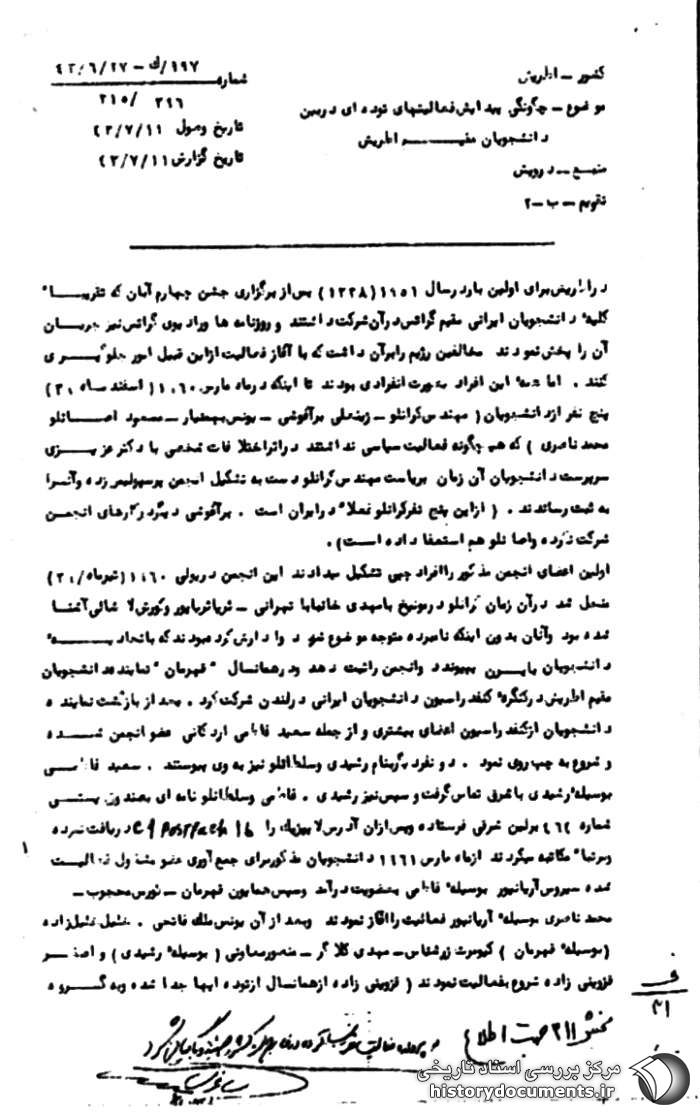 کشور ـ اطریش
موضوع ـ چگونگی پیدایش فعالیتهای توده ای دربین
دانشجویان مقیـــم اطریش
منبع ـ درویش
تقویم ـ ب ـ ۲
۱۹۷/ك ـ ۴۳/۶/۲۷
شماره
۳۹۶ /۳۱۵
تاریخ وصول ۴۳/۷/۱۱
تاریخ گزارش ۴۳/۷/۱۱
برای اولین بار درسال ۱۹۵۱ (۱۳۳۸) پس از برگزاری جشن چهارم آبان که تقریبـــا"
کلیه دانشجویان ایرانی مقیم گراتس درآن شرکت داشتند و روزنامه ها ورادیوی گراتس نیز جریــان
آن را پخش نمودند مخالفین رژیم رابرآن داشت که با آغاز فعالیت ازاین قبیل امور جلوگیـــری
کنند . اما همه این افراد بصورت انفرادی بودند تا اینکه درماه مارس ۱۹۶۰ (اسفند ماه ۳۰)
پنج نفر ازدانشجویان (مهندس کرانلو ـ زینعلی برآغوشی ـ یونس بهمدیار ـ مسعود اصــانلو
محمد ناصری ) که هیچگونه فعالیت سیاسی نداشتند دراثر اختلافات شخصی با دکتر عزیـــزی
سرپرست دانشجویان آن زمان بریاست مهندس کرانلو دست به تشکیل انجمن پرسپولیس زده وآنرا
به ثبت رساندند . ( ازاین پنج نفر کرانلو فعلا" درایران است . برآغوشی دیگر درکارهای انجمن
شرکت نکرده واصانلو هم استعفا داده اسـت ) .
اولین اعضای انجمن مذکور را افراد چپی تشکیل میدادند این انجمن درجولی ۱۹۶۰ (تیرماه ۳۰)
منحل شد درآن زمان کرانلو درمونیخ بامهدی خانبابا تهرانی ـ ثریا ثریاپور وکورش لاشائی آشنا
شده بود وآنان بدون اینکه نامبرده متوجه موضوع شود وادارش کرده بودند که بااتحادیـــه
دانشجویان بپیوندد وانجمن راثبت دهد ودرهمانسال " قهرمان " نماینده دانشجویان
مقیم اطریش درکنگره کنفدراسیون دانشجویان ایرانی درلندن شرکت کرد . بعد از بازگشت نماینده
دانشجویان ازکنفدراسیون اعضای بیشتری و از جمله سعید فاطمی اردکانی عضو انجمن شـــده
و شروع به چپ روی نمود . دو نفر دیگر بنام رشیدی وسلطانلو نیز به وی پیوستند . سعید فاطمـــی
بوسیله رشیدی با شرق تماس گرفت و سپس نیز رشیدی . فاطمی وسلطانلو نامه ای بصندوق پستـــی
شماره ۴۶۴ برلین شرقی فرستاده وپس ازآن آدرس لایپزیك را C1 Postfach 16 دریافت نموده
ومرتبا" مکاتبه میکردند ازماه مارس ۱۹۶۱ دانشجویان مذکور برای جمع آوری عضو مشغول فعالیـــت
شده سیروس آریانپور بوسیله فاطمی بعضویت درآمد وسپس همایون قهرمان ـ نورس محجوب ـ
محمد ناصری بوسیله آریانپور فعالیت را آغاز نمودند وبعد از آن یونس ملك فاتحی . خلیل خلیل زاده
(بوسیله قهرمان ) کیومرث زرشناس ـ مهدی کلاگر ـ منصور معاونی ( بوسیله رشیدی ) و اصغـــر
قزوینی زاده شروع بفعالیت نمودند ( قزوینی زاده ازهمانسال ازتوده ایها جدا شده وبه گـــروه
ف
۳۱
بخش ۳۱۱ جهت اطلاع
مرکز بررسی اسناد تاریخی
historydocuments.ir